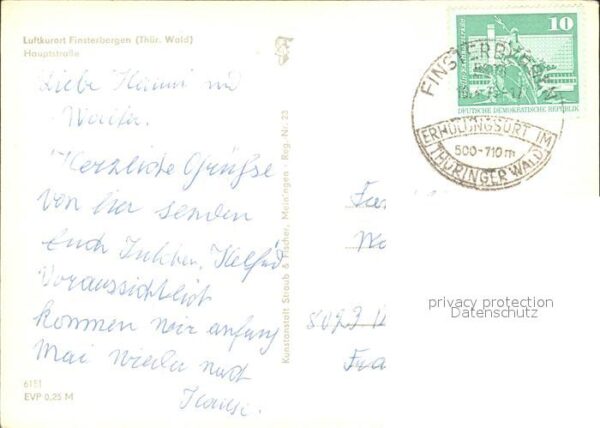 Luftkurort Finsterbergen (Thür. Wald)
Hauptstraße
Liebe Hanni und
Walter.
Herzliche Grüße
von hier senden
Euch Julchen, Helfrid
Voraussichtlich
kommen wir anfang
Mai wieder nach
Hause.
6151
EVP 0,25 M
Kunstanstalt Straub & Fischer, Meiningen · Reg.-Nr. 23
10
DEUTSCHE DEMOKRATISCHE REPUBLIK
FINSTERBERGEN
ERHOLUNGSORT IM
500-710m
THÜRINGER WALD
Fa
privacy protection
Datenschutz
Fra